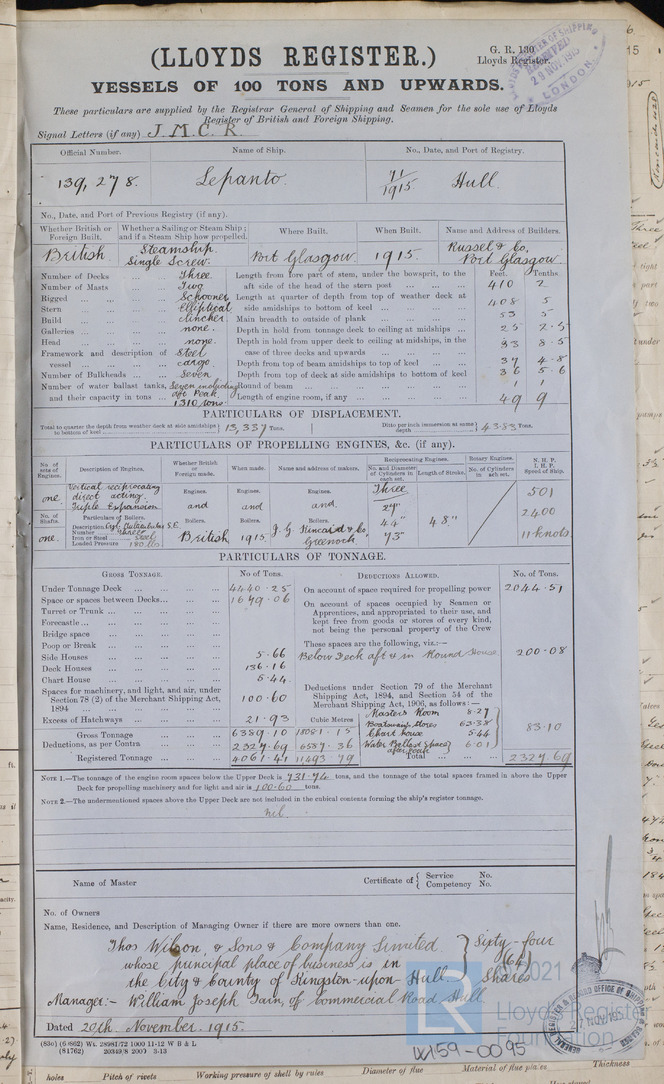 (LLOYDS REGISTER.)
G. R. 130
Lloyds Register.
VESSELS OF 100 TONS AND UPWARDS.
29 NOV 1915
LONDON
These particulars are supplied by the Registrar General of Shipping and Seamen for the sole use of Lloyds
Register of British and Foreign Shipping.
Signal Letters (if any) J. M. C. R.
Official Number. Name of Ship. No., Date, and Port of Registry.
139,278. Lepanto. 71/1915 Hull.
No., Date, and Port of Previous Registry (if any).
Whether British or Foreign Built. Whether a Sailing or Steam Ship; and if a Steam Ship how propelled. Where Built. When Built. Name and Address of Builders.
British Steamship. Single Screw. Port Glasgow 1915. Russel & Co, Port Glasgow.
Number of Decks Three
Number of Masts Two
Rigged Schooner
Stern Elliptical
Build Clincher
Galleries none.
Head none.
Framework and description of vessel Steel cargo
Number of Bulkheads Seven
Number of water ballast tanks, and their capacity in tons Seven including aft Peak. 1310 tons.
Feet. Tenths.
Length from fore part of stem, under the bowsprit, to the aft side of the head of the stern post 410 2
Length at quarter of depth from top of weather deck at side amidships to bottom of keel 408 5
Main breadth to outside of plank 53 5
Depth in hold from tonnage deck to ceiling at midships 25 2·5
Depth in hold from upper deck to ceiling at midships, in the case of three decks and upwards 33 8·5
Depth from top of beam amidships to top of keel 37 4·8
Depth from top of deck at side amidships to bottom of keel 36 5·6
Round of beam 1 1
Length of engine room, if any 49 9
PARTICULARS OF DISPLACEMENT.
Total to quarter the depth from weather deck at side amidships to bottom of keel 13,337 Tons. Ditto per inch immersion at same depth 43.83 Tons.
PARTICULARS OF PROPELLING ENGINES, &c. (if any).
No. of sets of Engines. Description of Engines. Whether British or Foreign made. When made. Name and address of makers. Reciprocating Engines. No. and Diameter of Cylinders in each set. Length of Stroke. Rotary Engines. No. of Cylinders in each set. N. H. P. I. H. P. Speed of Ship.
one Vertical reciprocating direct acting. Triple Expansion
Engines. Engines. Engines. Three
and and and 27"
501
No. of Shafts. Particulars of Boilers. Boilers. Boilers. Boilers.
one. Description
Number Three
Iron or Steel Steel
Loaded Pressure 180 lbs
British 1915 J. G. Kincaid & Co, Greenock 44" 73" 48" 2400 11 knots
PARTICULARS OF TONNAGE.
GROSS TONNAGE. No of Tons. DEDUCTIONS ALLOWED. No. of Tons.
Under Tonnage Deck 4440·25
Space or spaces between Decks 1679·06
Turret or Trunk
Forecastle
Bridge space
Poop or Break
Side Houses 5·66
Deck Houses 136·16
Chart House 5·44
Spaces for machinery, and light, and air, under Section 78 (2) of the Merchant Shipping Act, 1894 100·60
Excess of Hatchways 21·93 Cubic Metres
Gross Tonnage 6389·10 18081·15
Deductions, as per Contra 2327·69 6587·36
Registered Tonnage 4061·41 11493·79
On account of space required for propelling power 2044·51
On account of spaces occupied by Seamen or Apprentices, and appropriated to their use, and kept free from goods or stores of every kind, not being the personal property of the Crew
These spaces are the following, viz.:—
Below Deck aft & in Round House. 200·08
Deductions under Section 79 of the Merchant Shipping Act, 1894, and Section 54 of the Merchant Shipping Act, 1906, as follows:—
Masters Room 8·27
Boatswains Stores 63·38
Chart house 5·44
Water Ballast Space after peak 6·01
83·10
Total 2327·69
NOTE 1.—The tonnage of the engine room spaces below the Upper Deck is 731·74 tons, and the tonnage of the total spaces framed in above the Upper
Deck for propelling machinery and for light and air is 100·60 tons.
NOTE 2.—The undermentioned spaces above the Upper Deck are not included in the cubical contents forming the ship's register tonnage.
nil.
Name of Master Certificate of { Service No. Competency No.
No. of Owners
Name, Residence, and Description of Managing Owner if there are more owners than one.
Thos Wilson & Sons & Company Limited
whose principal place of business is in
the City & County of Kingston upon Hull
Sixty-four (64) Shares
Manager:- William Joseph Tain, of Commercial Road Hull
Dated 20th November 1915.
(81762) 20349/8 2000 3-13
LR
© 2021
Lloyd's Register
Foundation
W159-0095
holes Pitch of rivets Working pressure of shell by rules Diameter of flue Material of flue plates Thickness